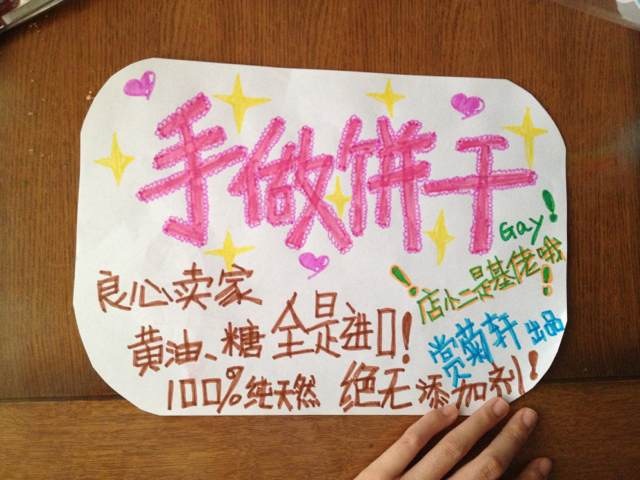 手做饼干
Gay!
良心卖家
!店小二是基佬哦!
黄油、糖全是进口!
赏菊轩 出品
100%纯天然 绝无添加剂!